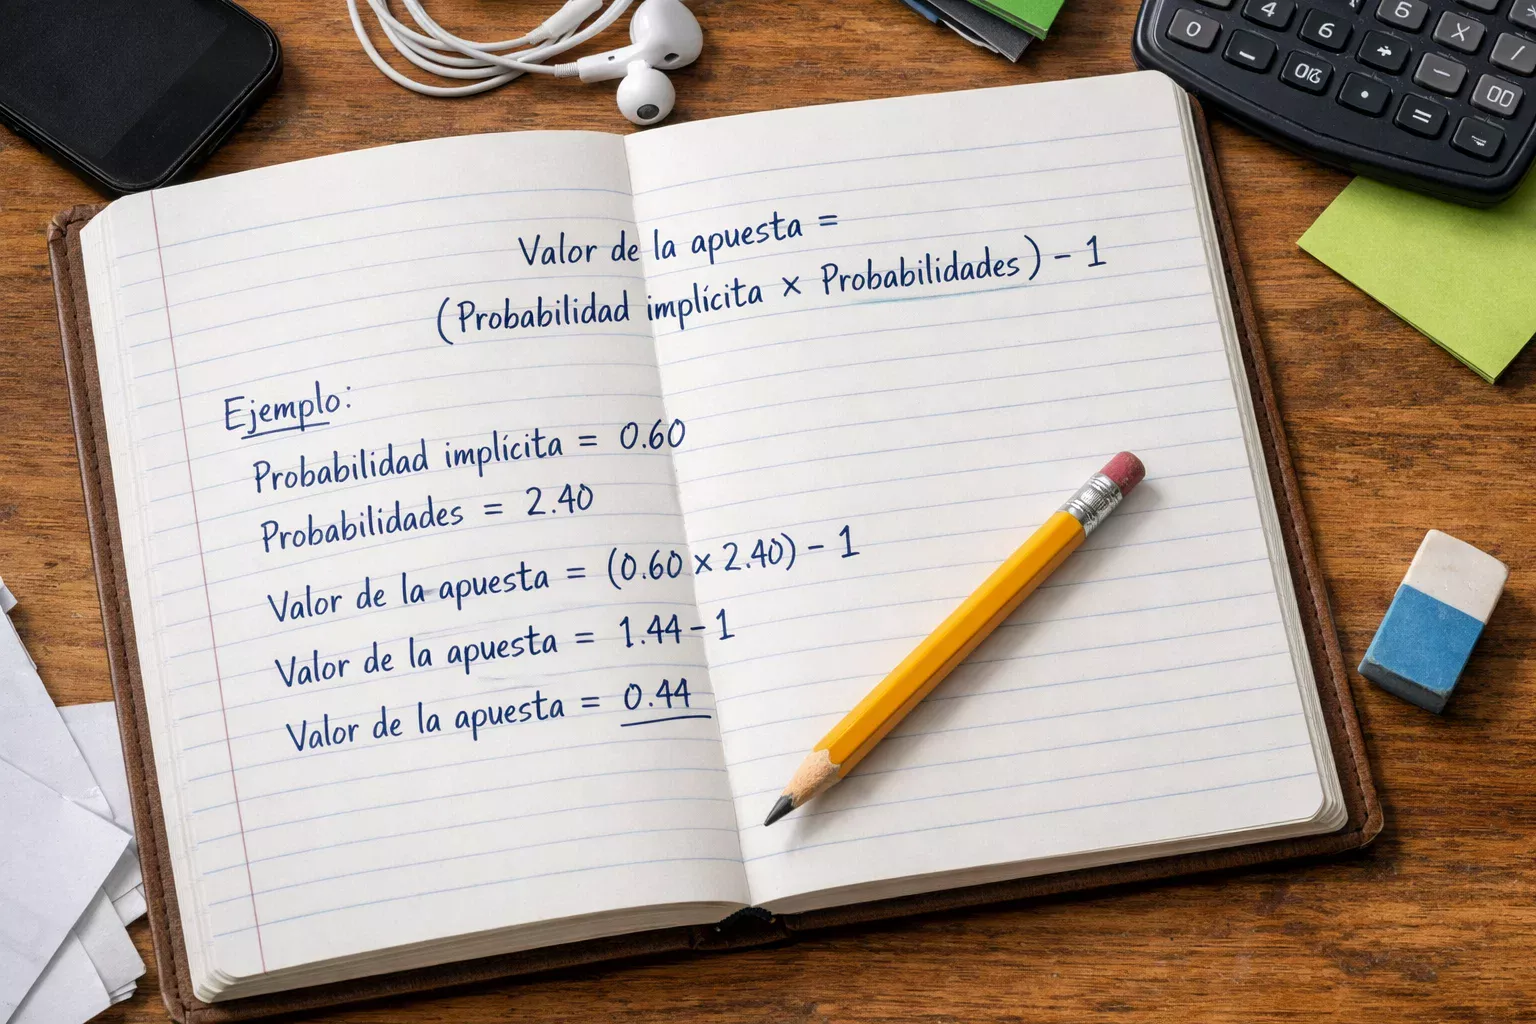 Valor de la apuesta =
(Probabilidad implícita × Probabilidades) - 1
Ejemplo:
Probabilidad implícita = 0.60
Probabilidades = 2.40
Valor de la apuesta = (0.60 × 2.40) - 1
Valor de la apuesta = 1.44 - 1
Valor de la apuesta = 0.44